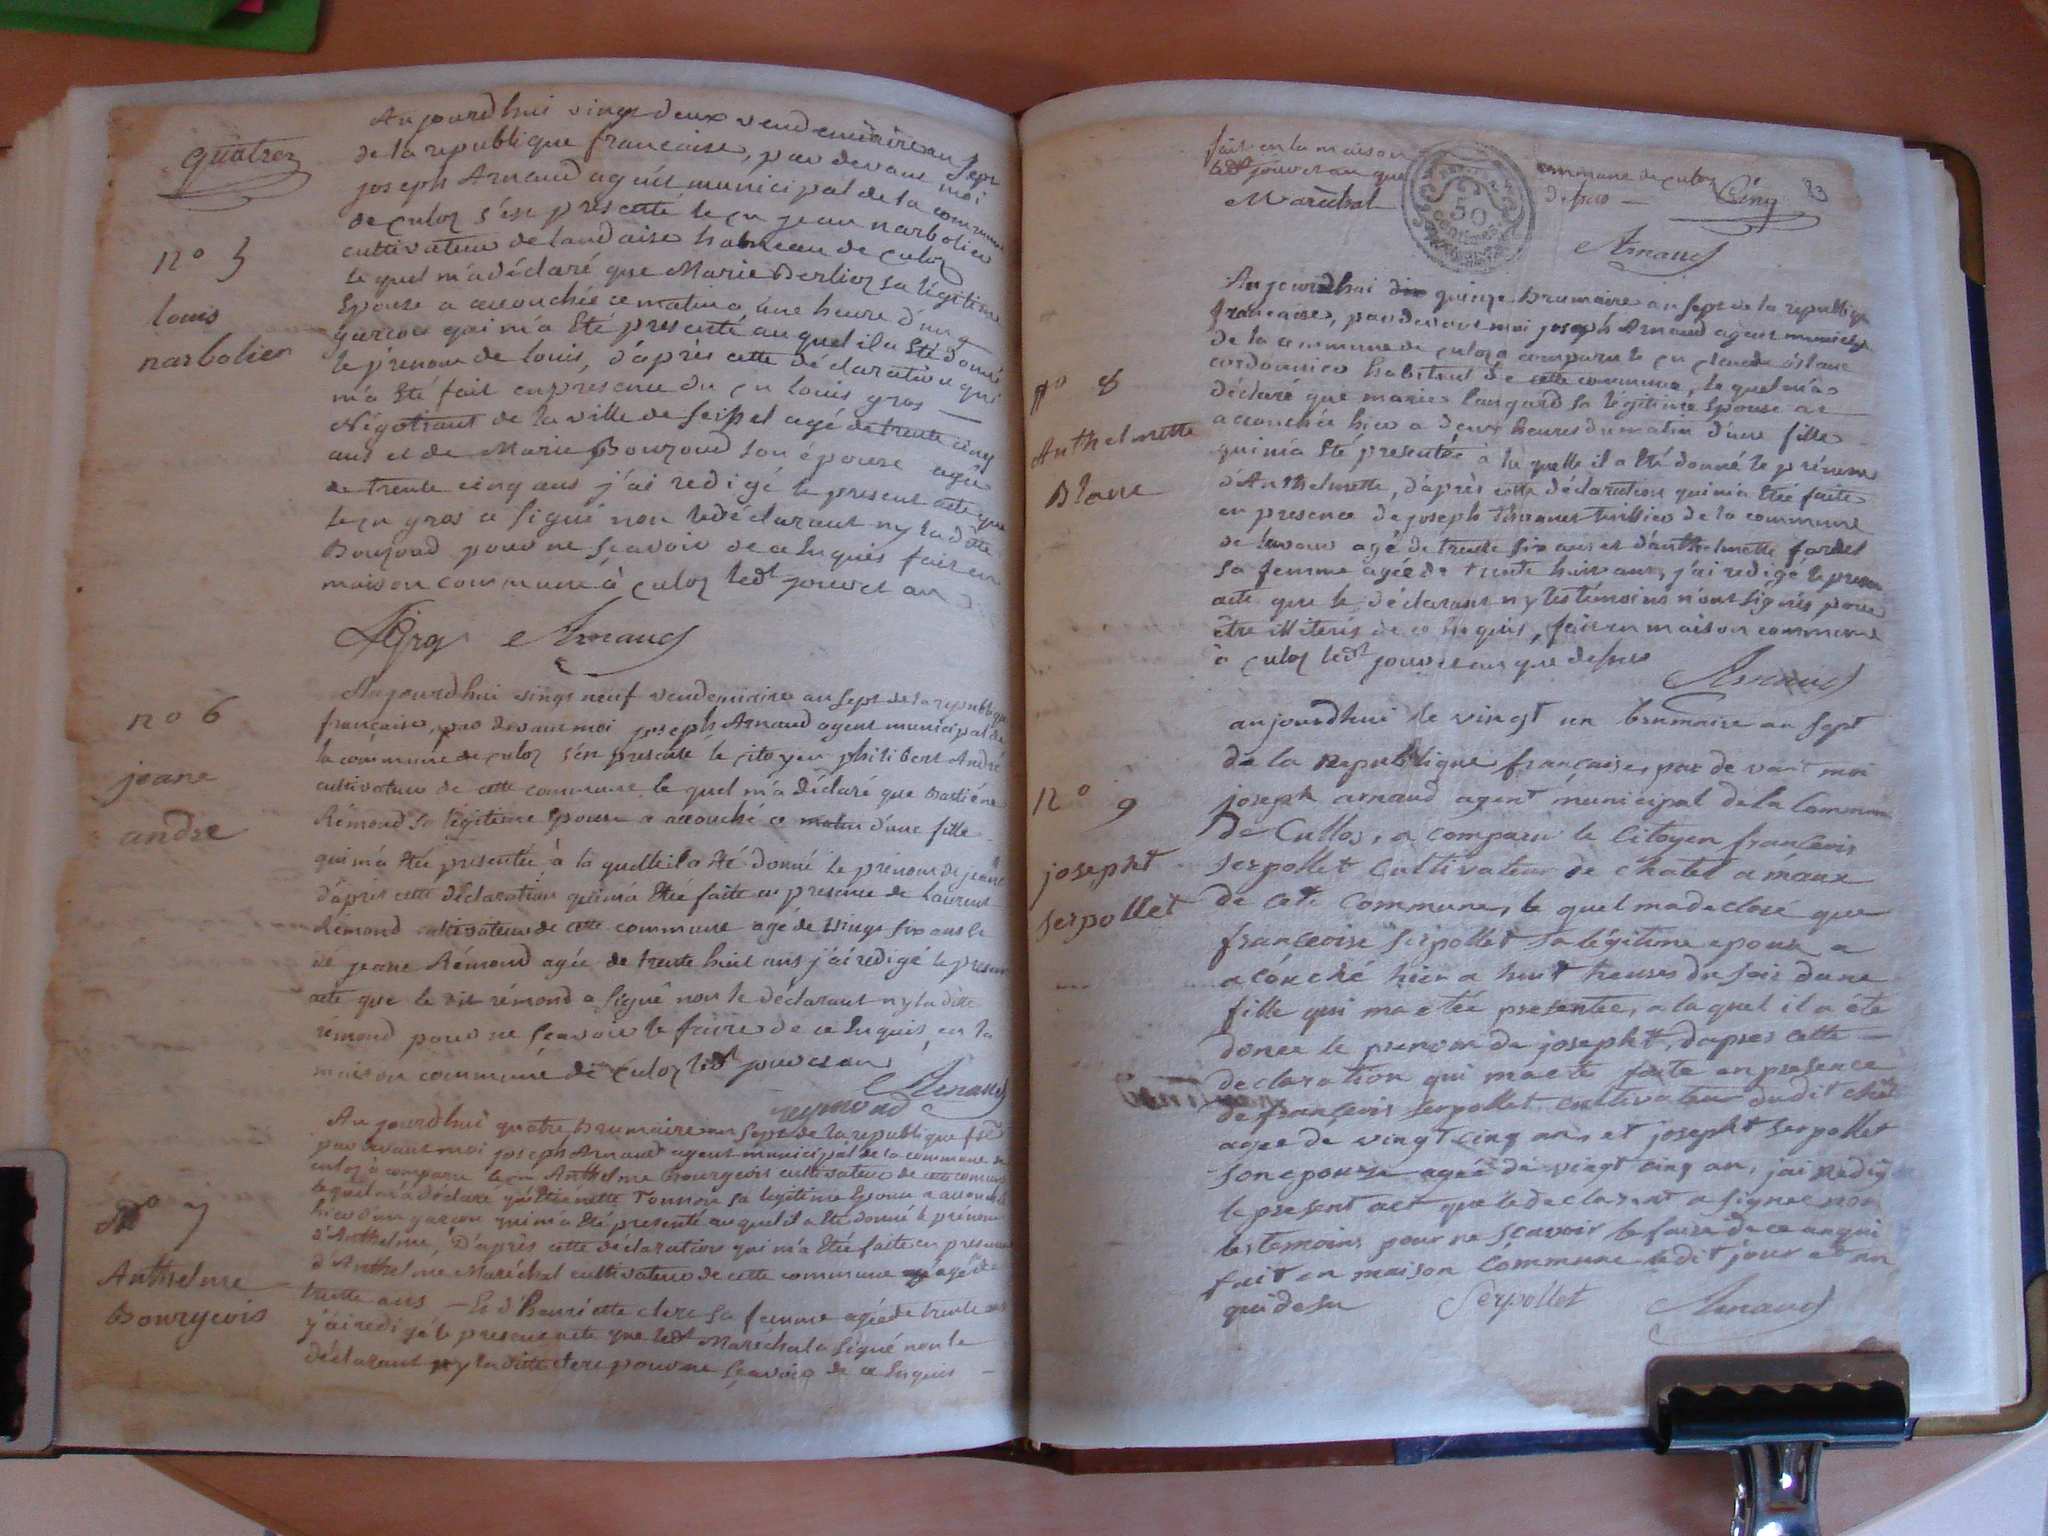 quatre
Aujourdhui vingt deux vendemiaire an sept
de la republique francaise, par devant moi
joseph Arnaud agent municipal de la commune
de Culoz s'est presenté le cn jean narbolier
cultivateur de landaise hameau de Culoz
n° 5
louis
narbolier
le quel m'a déclaré que Marie Berlioz sa légitime
Epouse a accouchée ce matin a une heure d'un
garcon qui m'a Eté presenté au quel il a Eté donné
le prénom de louis, d'après cette déclaration qui
m'a Eté fait en présence du cn louis gros
Négotiant de la ville de Seissel agé de trente cinq
ans et de Marie Bouzoud son épouse agée
de trente cinq ans j'ai redigé le present acte que
le cn gros a signé non le déclarant ny la dte
Bouzoud pour ne sçavoir de ce Enquis fait en
maison commune à Culoz ledt jour et an
Arnaud
n° 6
jeane
andre
Aujourdhui vingt neuf vendemiaire an sept de la republique
francaise, par devant moi joseph Arnaud agent municipal de
la commune de Culoz s'en presenté le citoyen philibert André
cultivateur de cette commune le quel m'a déclaré que
Rémond sa légitime Epouse a accouché ce matin d'une fille
qui m'a Eté presentée à la quelle il a Eté donné le prénom de jeane
d'après cette déclaration qui m'a Etée faite en presence de laurent
Rémond cultivateur de cette commune agé de vingt six ans et
de jeane Rémond agée de trente huit ans j'ai redigé le present
acte que le dit rémond a signé non le déclarant ny la ditte
rémond pour ne sçavoir le faire de ce Enquis, en la
maison commune de Culoz ledt jour et an
Arnaud
reymond
n° 7
Anthelme
Bourgeois
Aujourdhui quatre brumaire an sept de la republique fse
par devant moi joseph Arnaud agent municipal de la commune de
culoz a comparu le cn Anthelme Bourgeois cultivateur de cette commune
le quel m'a déclaré qu'Etiennette Tonnoi sa legitime Epouse a accouché
hier d'un garcon qui m'a Eté presenté au quel il a Eté donné le prénom
d'Anthelme, D'après cette déclaration qui m'a Etée faite en presence
d'Anthelme Maréchal cultivateur de cette commune agé de
trente ans — Et d'Henriette clerc sa femme agée de trente ans
j'ai redigé le present acte que ledt Maréchal a signé non le
déclarant ny la ditte clerc pour ne sçavoir de ce Enquis —
fait en la maison commune de culoz
ledt jour et an que dessus —
Maréchal
50
centimes
Cinq
83
Arnaud
n° 8
Anthelmette
Blanc
Aujourdhui dix quinze brumaire an sept de la republique
francaise, par devant moi joseph Arnaud agent municipal
de la commune de culoz a comparu le cn claude blanc
cordonnier habitant de cette commune, le quel m'a
déclaré que marie langard sa légitime Epouse a
accouchée hier a deux heures du matin d'une fille
qui m'a Eté presentée à la quelle il a Eté donné le prénom
d'Anthelmette, d'après cette déclaration qui m'a Etée faite
en presence de joseph tuillier de la commune
de lavour agé de trente six ans et d'anthelmette
sa femme agée de trente huit ans, j'ai redigé le present
acte que le déclarant ny les témoins n'ont signés pour
être illiterés de ce Enquis, fait en maison commune
à culoz ledt jour et an que dessus
Arnaud
n° 9
josepht
serpollet
aujourdhui le vingt un brumaire an sept
de la Republique française, par de vant moi
joseph arnaud agent municipal de la Commune
De Cullos, a comparu le Citoyen françois
serpollet Cultivateur de chatel
de cete Commune, le quel ma declaré que
françoise serpollet sa légitime epouse a
acouché hier a huit heures du soir dune
fille qui ma etée presentée, a la quel il a éte
donée le prenom de josepht, dapres cette —
declaration qui ma ete faite en presence
de françois serpollet cultivateur dudit
agee de vingt cinq ans et josepht serpollet
son epouse agée de vingt cinq an, jai redigé
le present act que le declarant a signee non
les temoins pour ne scavoir le faire de ce anqui
fait en maison Commune ledit jour et an
qui desu
Serpollet
Arnaud